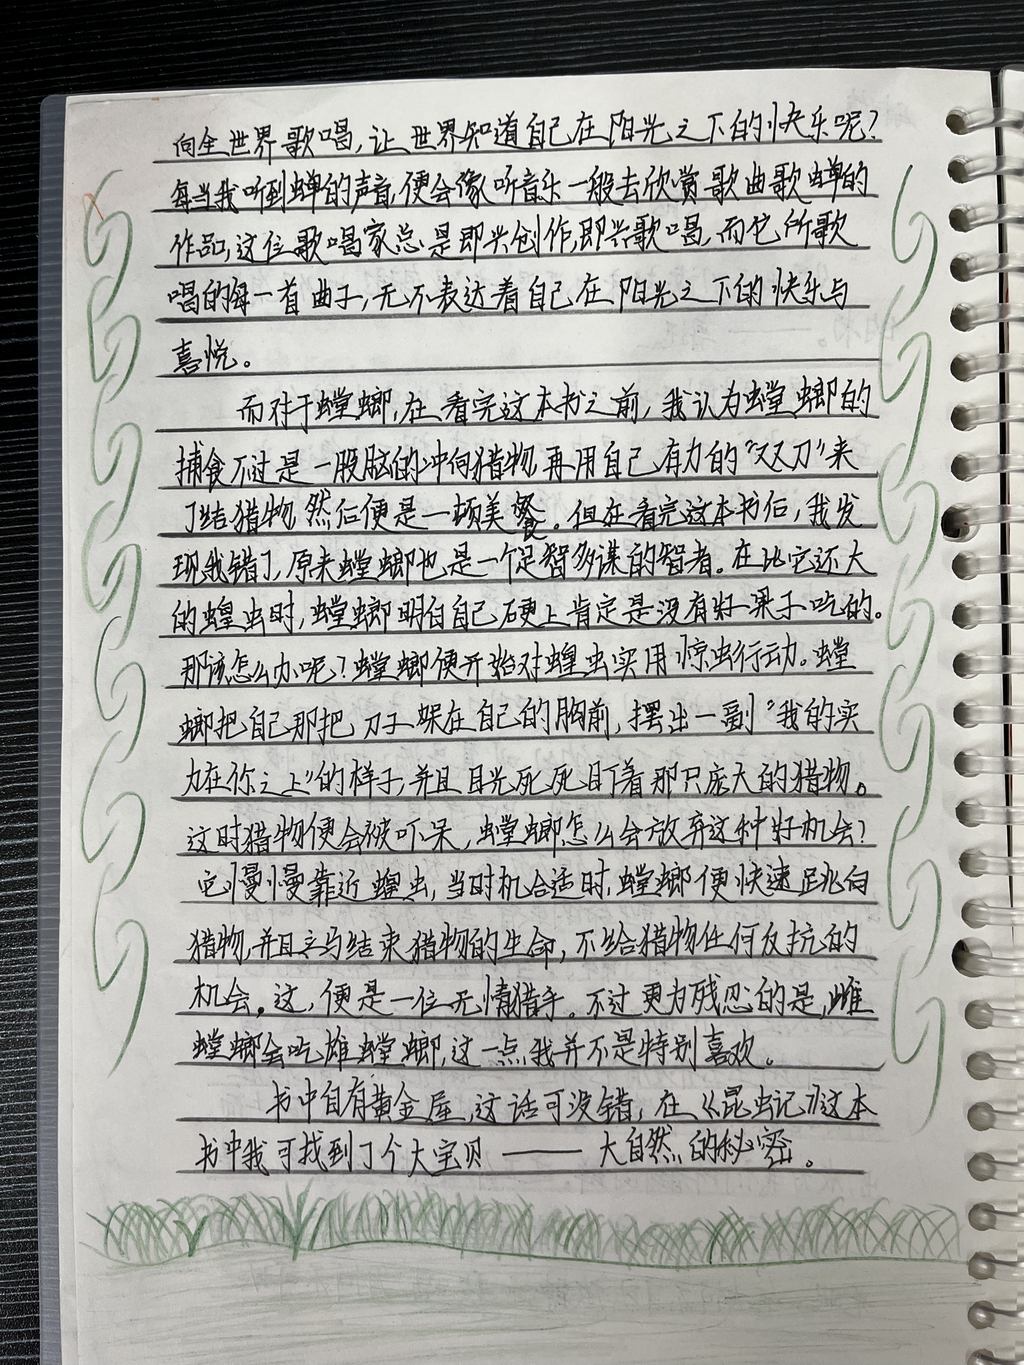 向全世界歌唱,让世界知道自己在阳光之下的快乐呢?
每当我听到蝉的声音,便会像听音乐一般去欣赏歌曲歌蝉的
作品,这位歌唱家总是即兴创作,即兴歌唱,而它所歌
唱的每一首曲子,无不表达着自己在阳光之下的快乐与
喜悦。
而对于螳螂,在看完这本书之前,我认为螳螂的
捕食不过是一股脑的冲向猎物,再用自己有力的“双刀”来
了结猎物,然后便是一顿美餐。但在看完这本书后,我发
现我错了,原来螳螂也是一个足智多谋的智者。在比它还大
的蝗虫时,螳螂明白自己硬上肯定是没有好果子吃的。
那该怎么办呢?螳螂便开始对蝗虫实用惊虫行动。螳
螂把自己那把刀子架在自己的胸前,摆出一副“我的实
力在你之上”的样子,并且目光死死盯着那只庞大的猎物。
这时猎物便会被吓呆,螳螂怎么会放弃这种好机会?
它慢慢靠近蝗虫,当时机合适时,螳螂便快速跳向
猎物,并且立马结束猎物的生命,不给猎物任何反抗的
机会。这,便是一位无情猎手。不过更为残忍的是,雌
螳螂会吃雄螳螂,这一点我并不是特别喜欢。
书中自有黄金屋,这话可没错,在《昆虫记》这本
书中我可找到了个大宝贝——大自然的秘密。